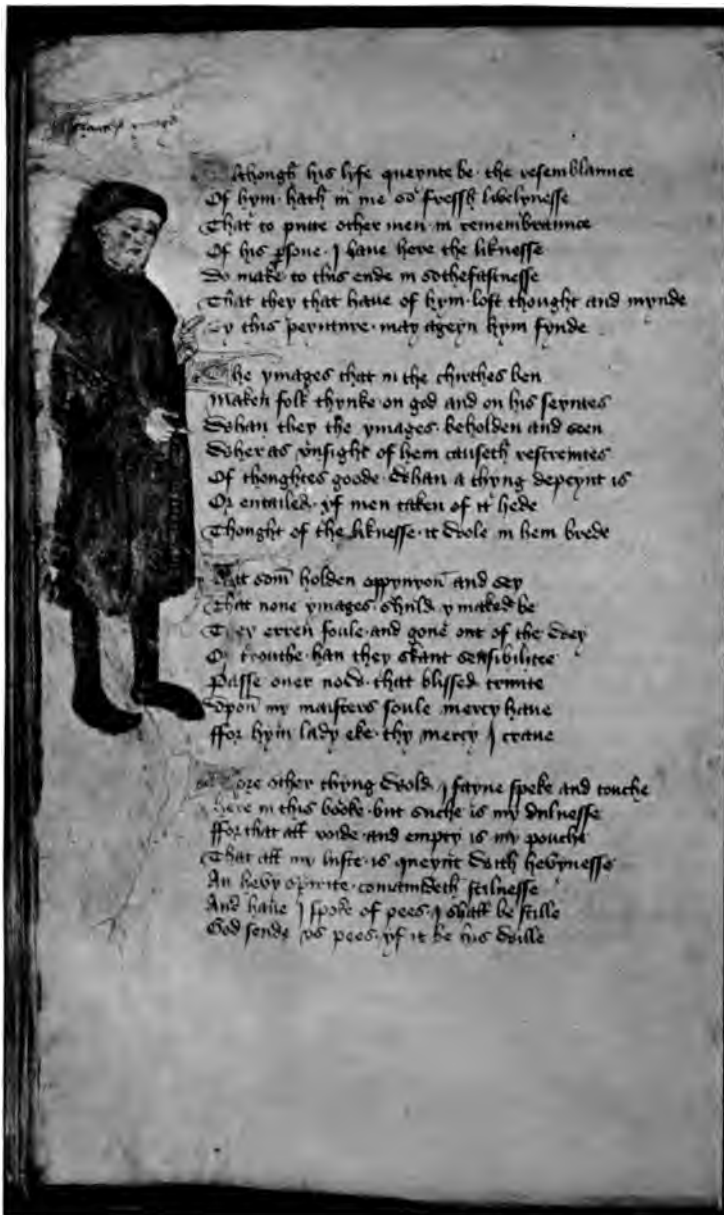 Although his lyfe queynte be the resemblaunce
Of hym hath in me so fressh livelynesse
That to putte other men in remembraunce
Of his psone I haue here the liknesse
Do make to this ende in sothefastnesse
That they that haue of hym loft thought and mynde
By this peynture may ageyn hym fynde
The ymages that in the chirches ben
Maken folk thynke on god and on his seyntes
Whan they the ymages beholden and seen
Wheras vnsight of hem causeth restreintes
Of thoughtes goode whan a thyng depeynt is
Or entailed yf men taken of it hede
Thought of the liknesse it wole in hem brede
Yitt som holden oppynyon and sey
That none ymages shuld ymaked be
They erren foule and gone out of the wey
Of trouthe han they skant sensibilitee
Passe ouer now that blissed trinite
Vpon my maisters soule mercy haue
ffor hym lady eke thy mercy I craue
More other thyng wold I fayne speke and touche
Here in this booke but suche is my dulnesse
ffor that all voide and empty is my pouche
That all my luste is queynt with hevynesse
An hevy spirite comaundeth stilnesse
And haue I spoke of pees I shall be stille
God sende vs pees yf it be his wille